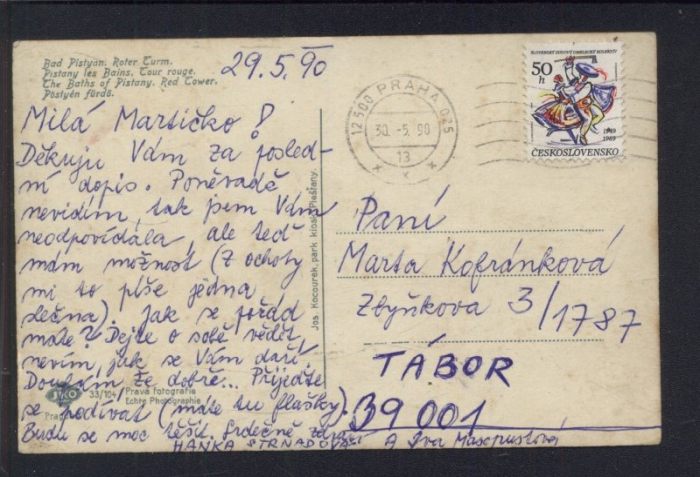 Bad Pistyan. Roter Turm.
Pistany les Bains. Tour rouge.
The Baths of Pistany. Red Tower.
Pöstyén fürdő.
29.5.90
Milá Martičko!
Děkuju Vám za posled-
ní dopis. Poněvadž
nevidím, tak jsem Vám
neodpovídala, ale teď
mám možnost (z ochoty
mi to píše jedna
slečna). Jak se pořád
máte? Dejte o sobě vědět,
nevím, jak se Vám daří.
Doufám že dobře... Přijeďte
se podívat (máte tu flašky).
Budu se moc těšit. Srdečně zdraví
HANKA STRNADOVÁ A Iva
33/104 Pravá fotografie
Echte Photographie
Jos. Kocourek, park kiosk, Piešťany.
12500 PRAHA 025
30.-5.90
13
SLOVENSKÝ ĽUDOVÝ UMELECKÝ KOLEKTÍV
50 h
1949
1989
ČESKOSLOVENSKO
Paní
Marta Kofránková
Zbyňkova 3/1787
TÁBOR
39001